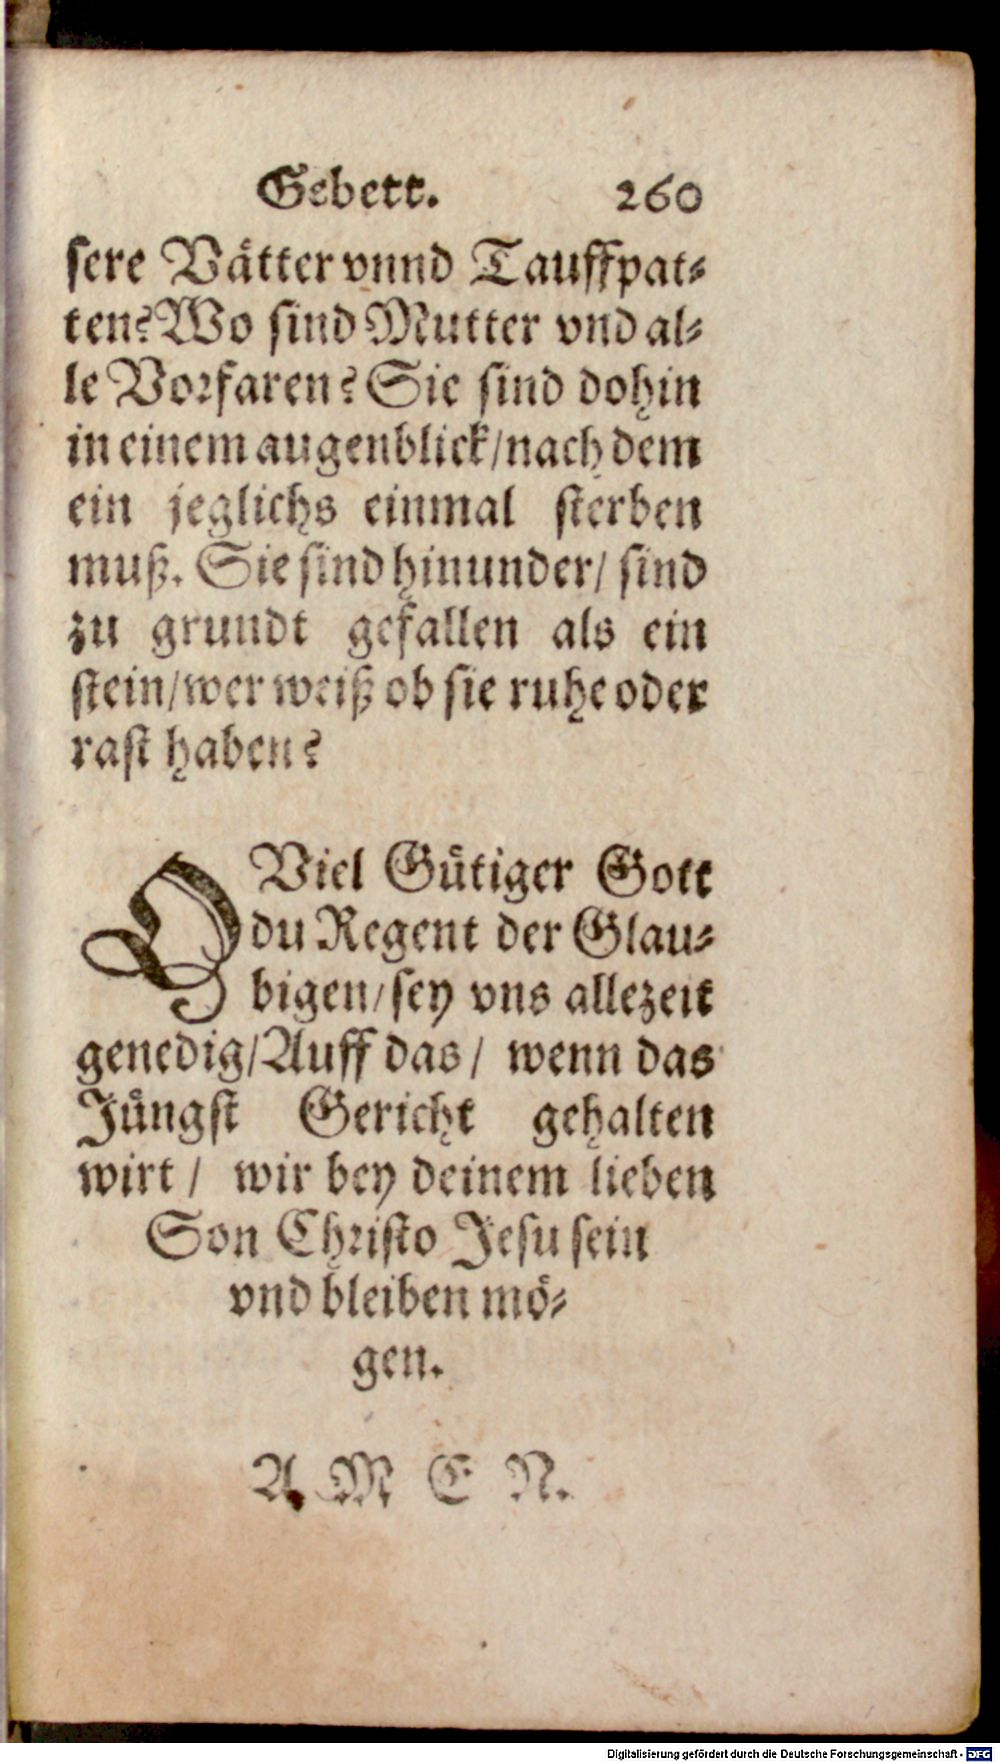 Gebett. 260
sere Vätter vnnd Tauffpat⸗
ten? Wo sind Mutter vnd al⸗
le Vorfaren? Sie sind dohin
in einem augenblick/ nach dem
ein jeglichs einmal sterben
muß. Sie sind hinunder/ sind
zu grundt gefallen als ein
stein/ wer weiß ob sie ruhe oder
rast haben?
O Viel Gütiger Gott
du Regent der Glau⸗
bigen/ sey vns allezeit
genedig/ Auff das/ wenn das
Jüngst Gericht gehalten
wirt/ wir bey deinem lieben
Son Christo Jesu sein
vnd bleiben mö⸗
gen.
A M E N.
Digitalisierung gefördert durch die Deutsche Forschungsgemeinschaft - DFG